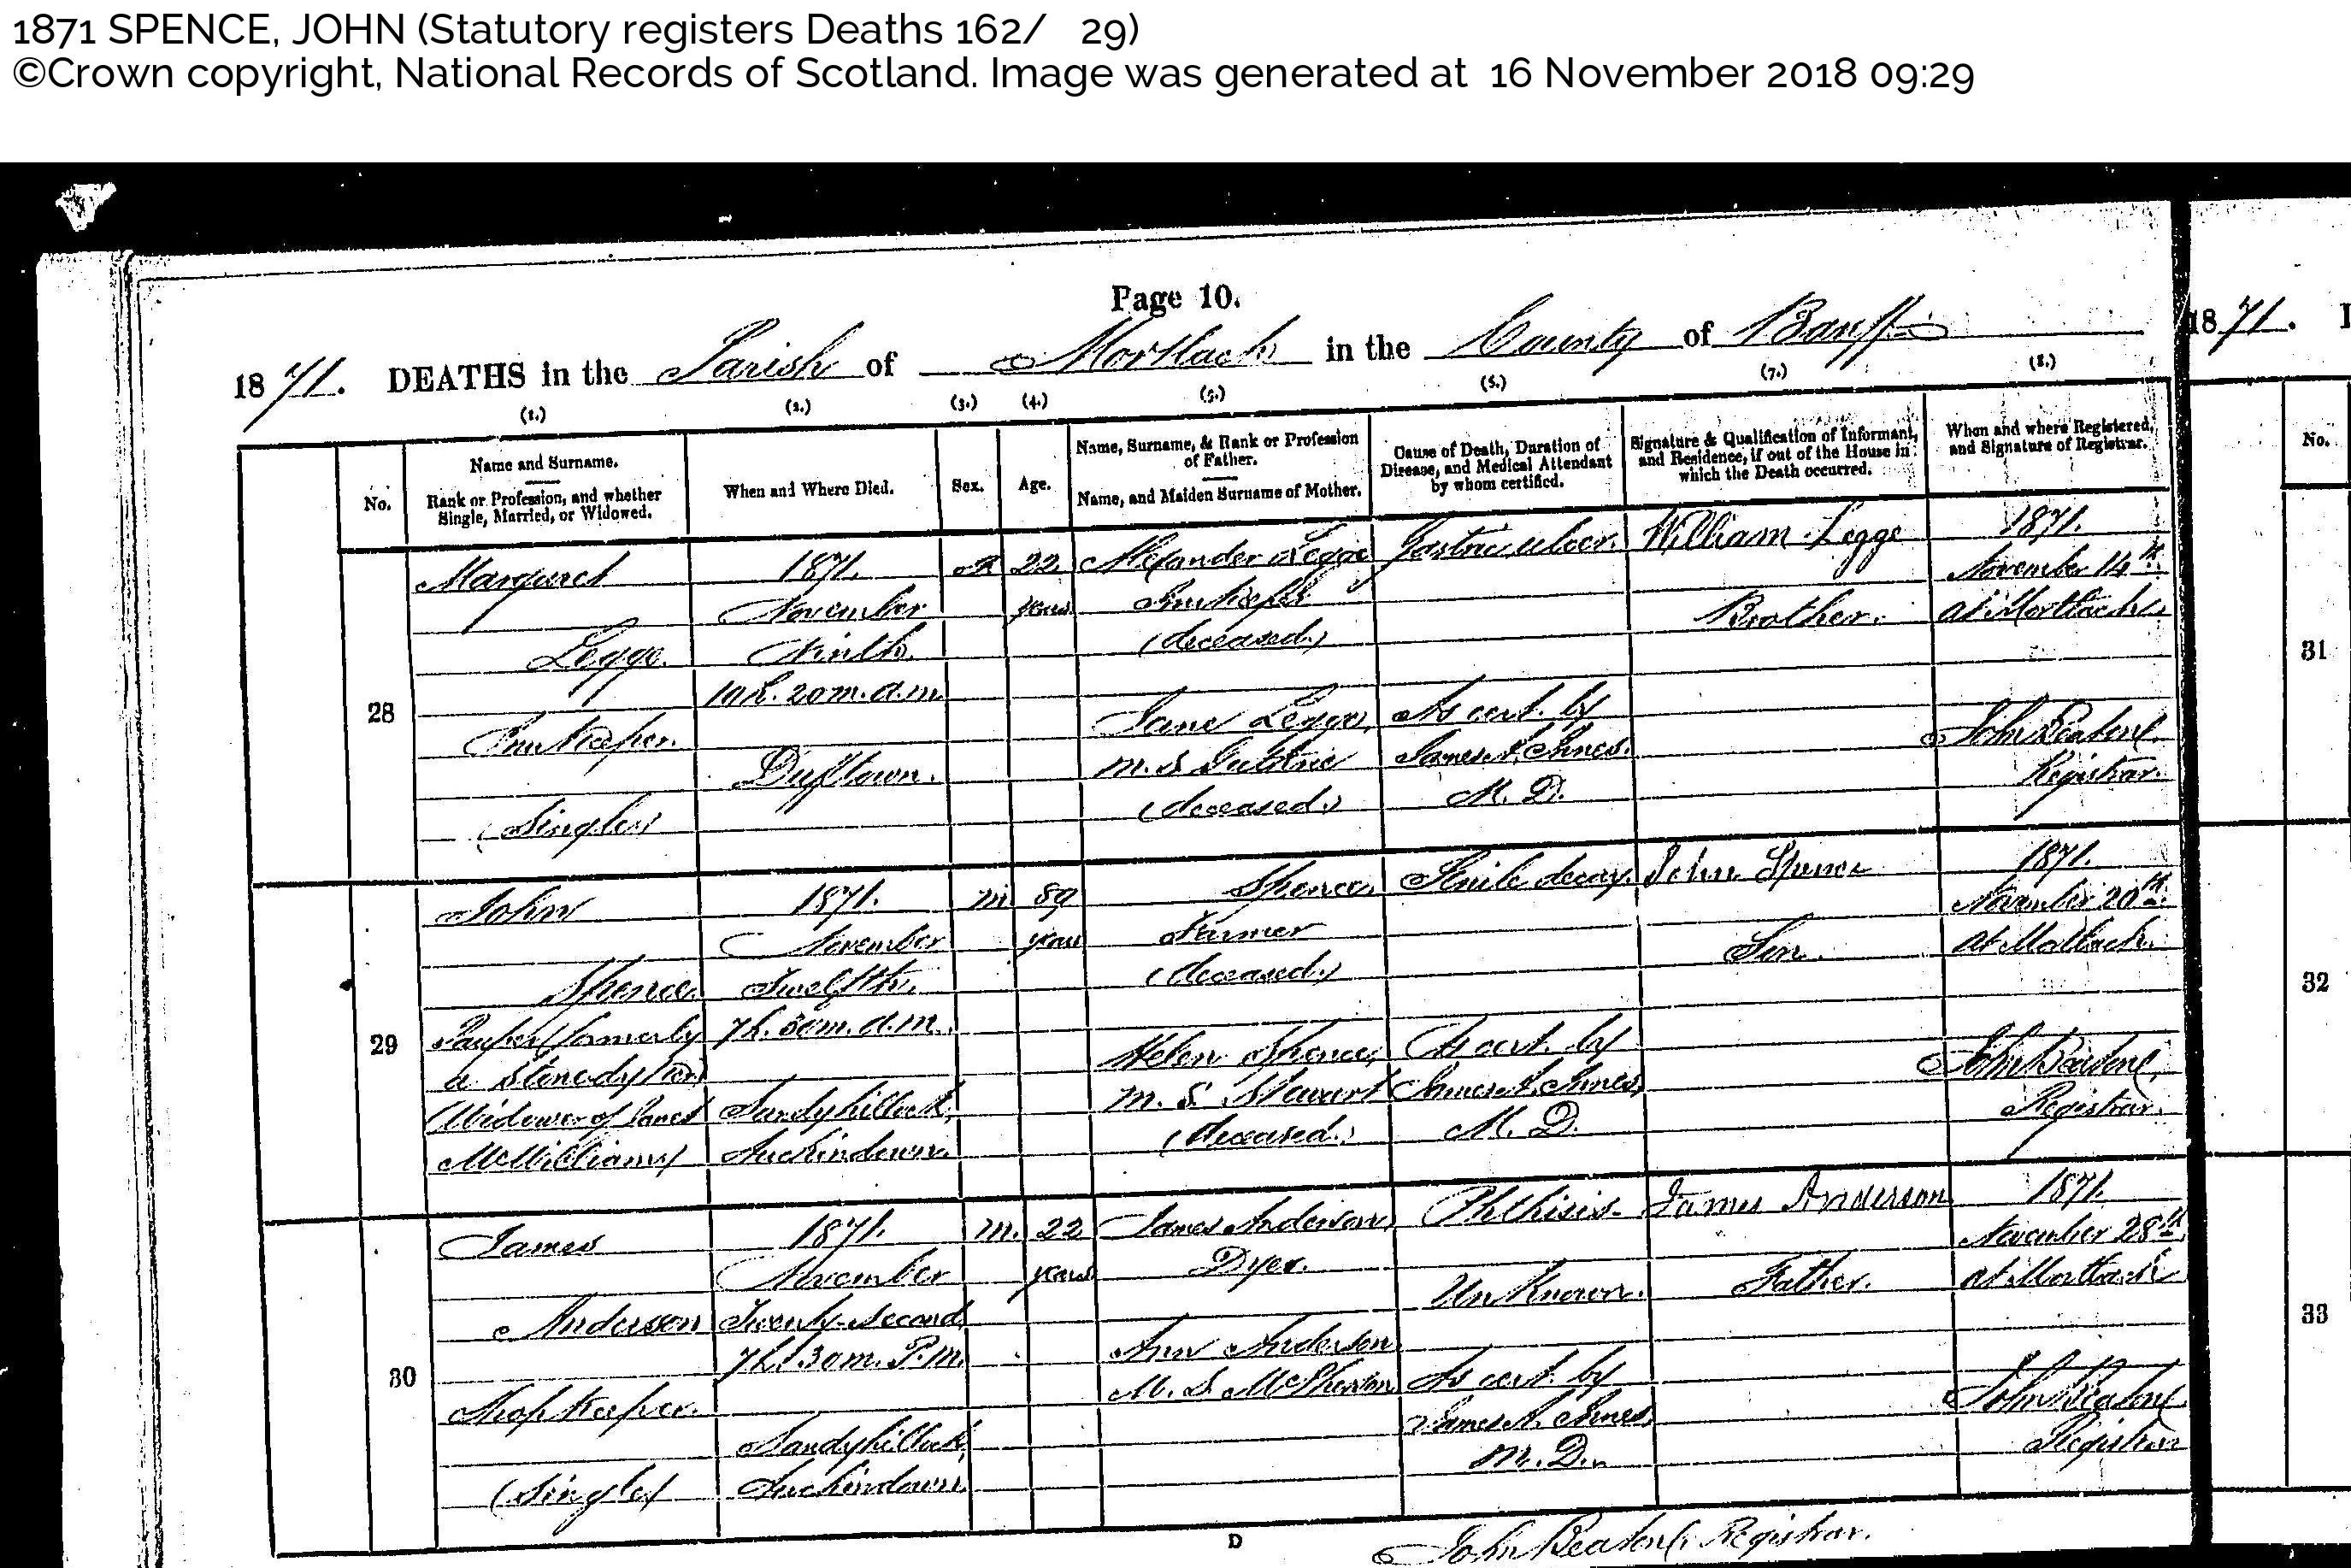 1871 SPENCE, JOHN (Statutory registers Deaths 162/ 29)
©Crown copyright, National Records of Scotland. Image was generated at 16 November 2018 09:29
Page 10.
1871. DEATHS in the Parish of Mortlach in the County of Banff
1871.
(1.) (2.) (3.) (4.) (5.) (6.) (7.) (8.)
No.
Name and Surname.
Rank or Profession, and whether
Single, Married, or Widowed.
When and Where Died.
Sex.
Age.
Name, Surname, & Rank or Profession
of Father.
Name, and Maiden Surname of Mother.
Cause of Death, Duration of
Disease, and Medical Attendant
by whom certified.
Signature & Qualification of Informant,
and Residence, if out of the House in
which the Death occurred.
When and where Registered,
and Signature of Registrar.
No.
28
Margaret
Legge.
Innkeeper.
(Single)
1871.
November
Ninth.
10h. 20m. a.m.
Dufftown.
F
22
years
Alexander Legge
Innkeeper
(deceased.)
Jane Legge,
m.S Guthrie
(deceased.)
Gastric ulcer.
As cert. by
James A. Innes.
M. D.
William Legge
Brother.
1871.
November 14th
at Mortlach.
John Beaton,
Registrar.
29
John
Spence.
Pauper (formerly
a
(Widower of Janet
McWilliams)
1871.
November
Twelfth.
7h. 30m. a.m.
Sandyhillock,
Auchindown.
M
89
years
Spence,
Farmer
(deceased.)
Helen Spence,
m. S. Stewart
(deceased.)
Senile decay.
As cert. by
James A. Innes,
M. D.
John Spence
Son.
1871.
November 20th.
at Mortlach.
John Beaton,
Registrar.
30
James
Anderson
Shopkeeper.
(Single)
1871.
November
Twenty-second
7h. 30m. P.m.
Sandyhillock,
Auchindown.
M.
22
years
James Anderson,
Dyer.
Ann Anderson
M. S. McPherson
Phthisis.
Unknown.
As cert. by
James A. Innes
M. D.
James Anderson
Father.
1871.
November 28th.
at Mortlach
John Beaton,
Registrar
31
32
33
D
John Beaton, Registrar.